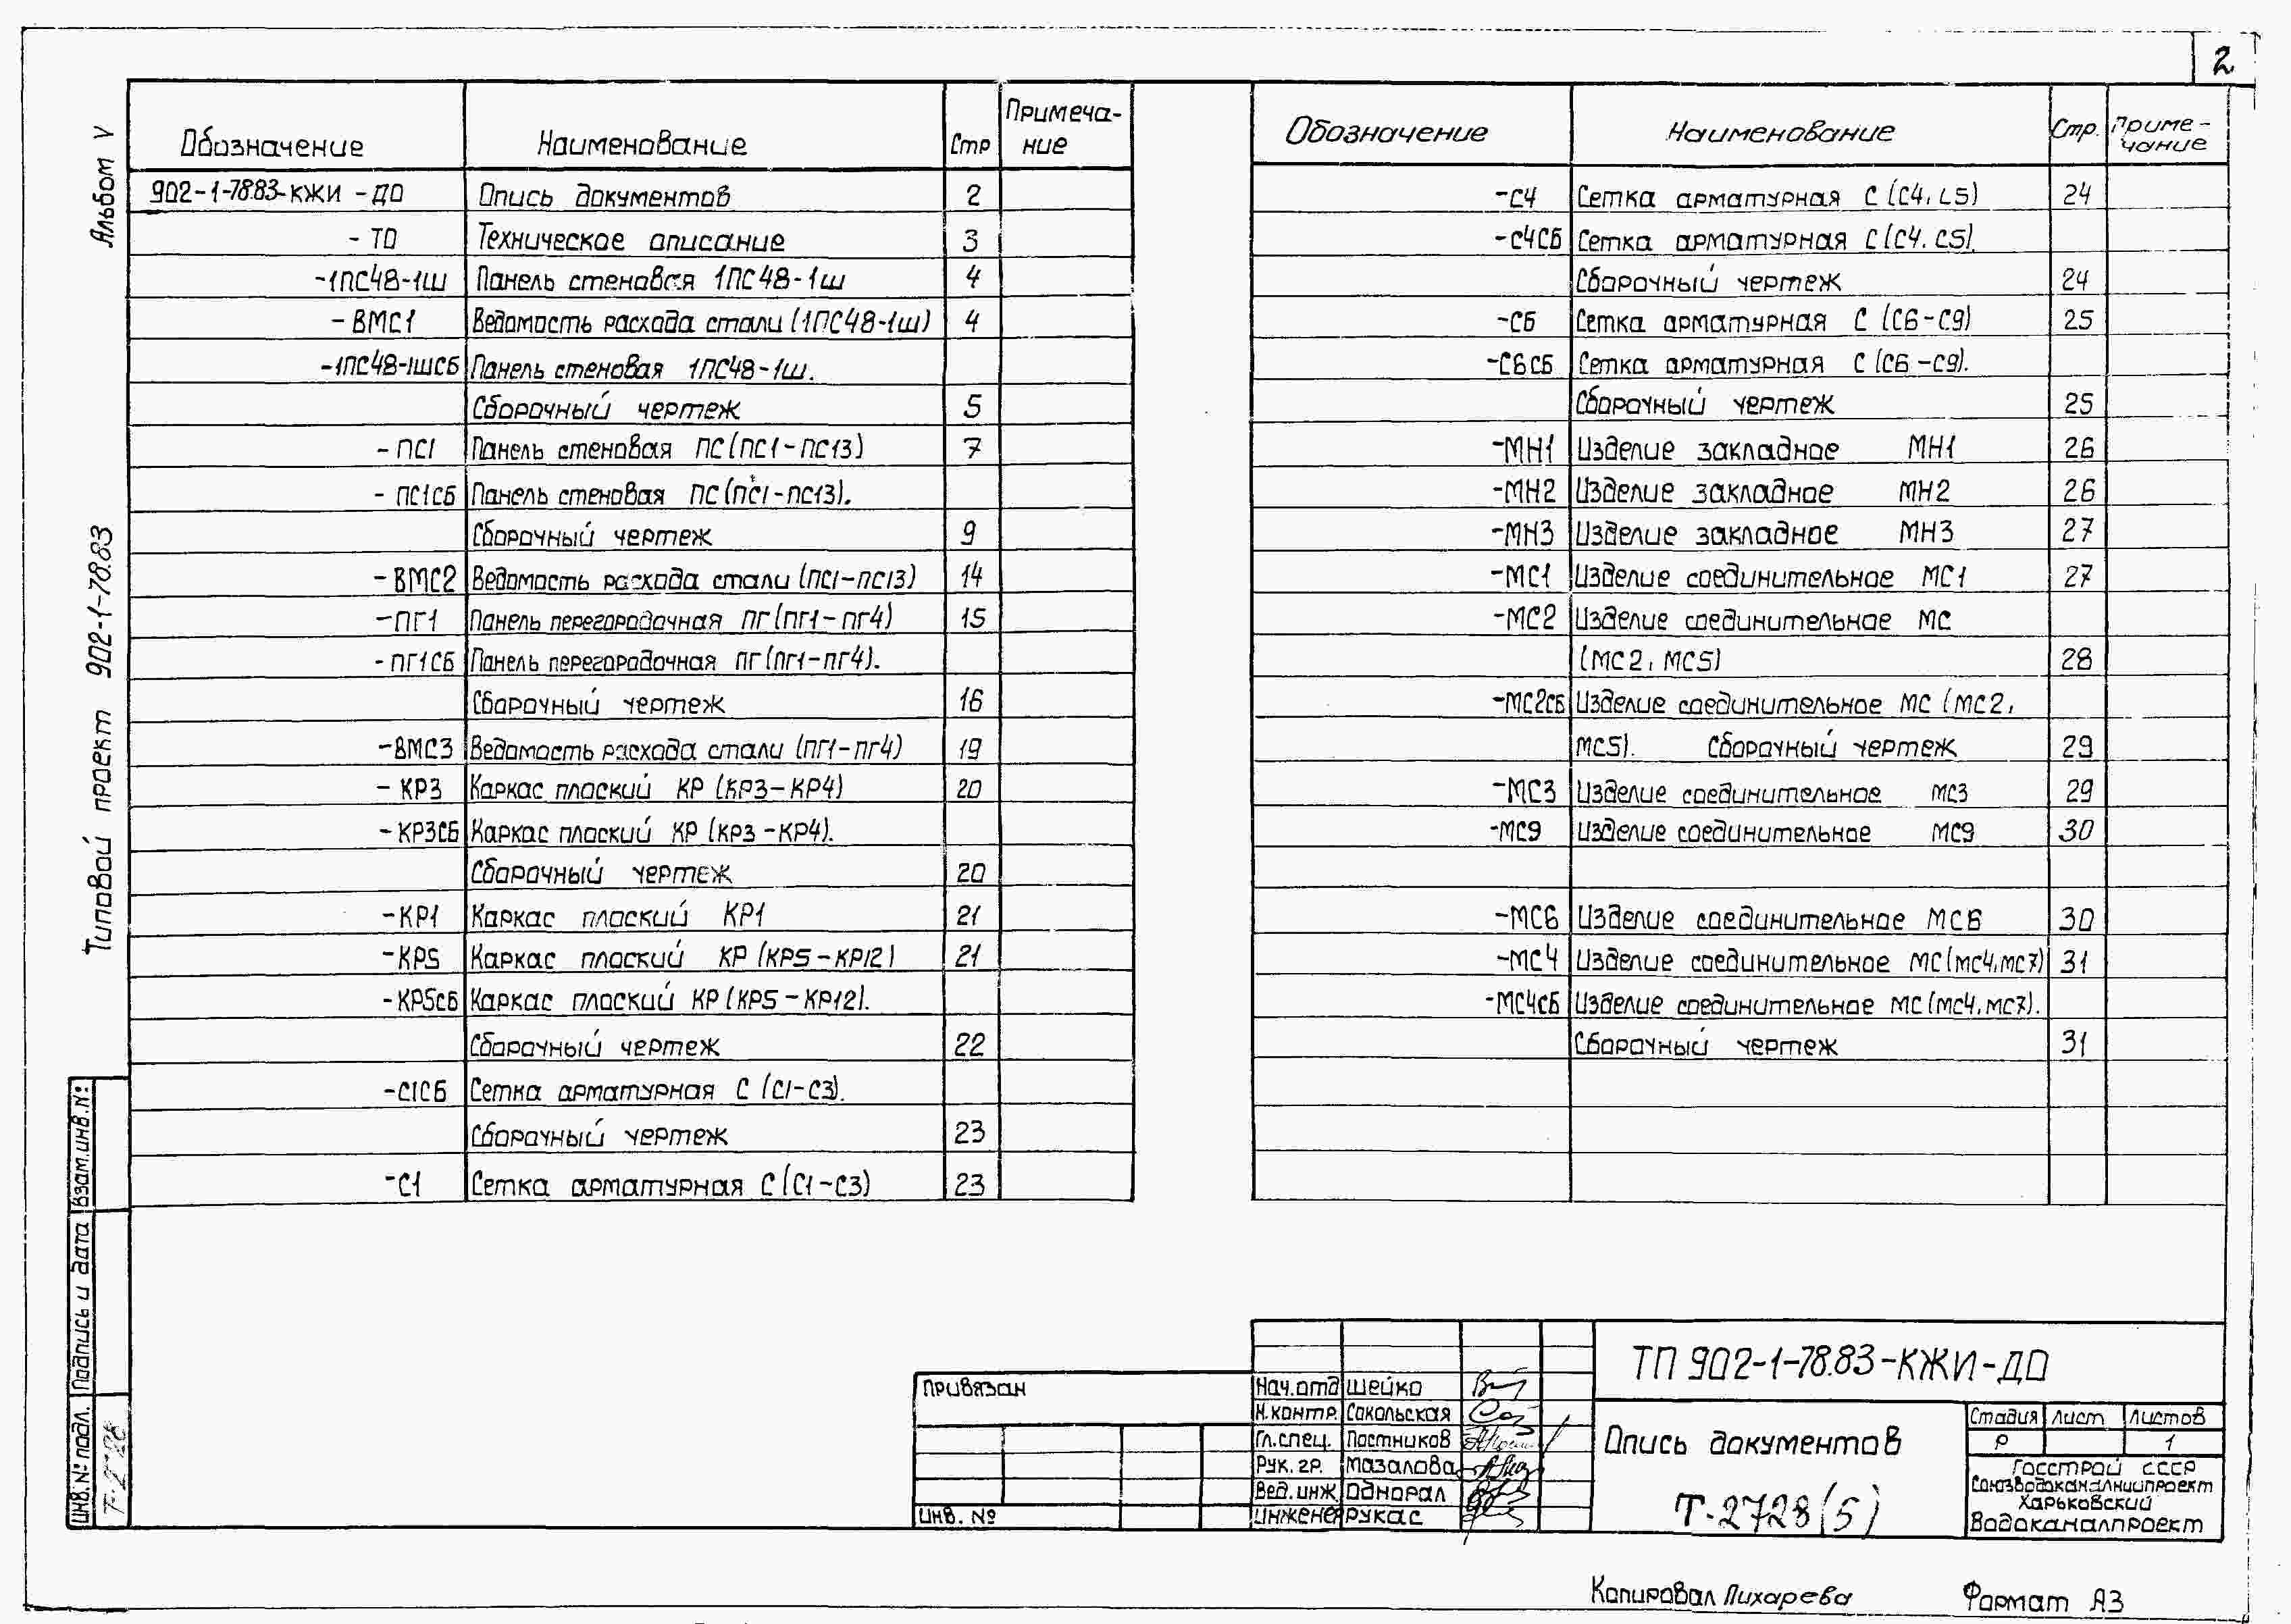 2
Альбом V
Типовой проект 902-1-78.83
Обозначение Наименование Стр Примеча-
ние
902-1-78.83-КЖИ -ДО Опись документов 2
- ТО Техническое описание 3
-1ПС48-1ш Панель стеновая 1ПС48-1ш 4
- ВМС1 Ведомость расхода стали (1ПС48-1ш) 4
-1ПС48-1шСБ Панель стеновая 1ПС48-1ш.
Сборочный чертеж 5
- ПС1 Панель стеновая ПС (ПС1-ПС13) 7
- ПС1СБ Панель стеновая ПС (ПС1-ПС13).
Сборочный чертеж 9
- ВМС2 Ведомость расхода стали (ПС1-ПС13) 14
-ПГ1 Панель перегородочная ПГ (ПГ1-ПГ4) 15
- ПГ1СБ Панель перегородочная ПГ (ПГ1-ПГ4).
Сборочный чертеж 16
-ВМС3 Ведомость расхода стали (ПГ1-ПГ4) 19
- КР3 Каркас плоский КР (КР3-КР4) 20
- КР3СБ Каркас плоский КР (КР3-КР4).
Сборочный чертеж 20
-КР1 Каркас плоский КР1 21
-КР5 Каркас плоский КР (КР5-КР12) 21
-КР5СБ Каркас плоский КР (КР5-КР12).
Сборочный чертеж 22
-С1СБ Сетка арматурная С (С1-С3).
Сборочный чертеж 23
-С1 Сетка арматурная С (С1-С3) 23
Обозначение Наименование Стр. Приме-
чание
-С4 Сетка арматурная С (С4, С5) 24
-С4СБ Сетка арматурная С (С4, С5).
Сборочный чертеж 24
-С6 Сетка арматурная С (С6-С9) 25
-С6СБ Сетка арматурная С (С6-С9).
Сборочный чертеж 25
-МН1 Изделие закладное МН1 26
-МН2 Изделие закладное МН2 26
-МН3 Изделие закладное МН3 27
-МС1 Изделие соединительное МС1 27
-МС2 Изделие соединительное МС
(МС2, МС5) 28
-МС2СБ Изделие соединительное МС (МС2,
МС5). Сборочный чертеж 29
-МС3 Изделие соединительное МС3 29
-МС9 Изделие соединительное МС9 30
-МС6 Изделие соединительное МС6 30
-МС4 Изделие соединительное МС (МС4, МС7) 31
-МС4СБ Изделие соединительное МС (МС4, МС7).
Сборочный чертеж 31
Взам.инв.№
Подпись и дата
Инв.№ подл.
Привязан
Инв. №
Нач.отд Шейко
Н.контр. Сокольская
Гл.спец. Постников
Рук. гр. Мазалова
Вед.инж Однорал
Инженер Рукас
ТП 902-1-78.83-КЖИ-ДО
Опись документов
Т-2728(5)
Стадия Лист Листов
Р 1
Госстрой СССР
Союзводоканалниипроект
Харьковский
Водоканалпроект
Копировал Лихарева Формат А3